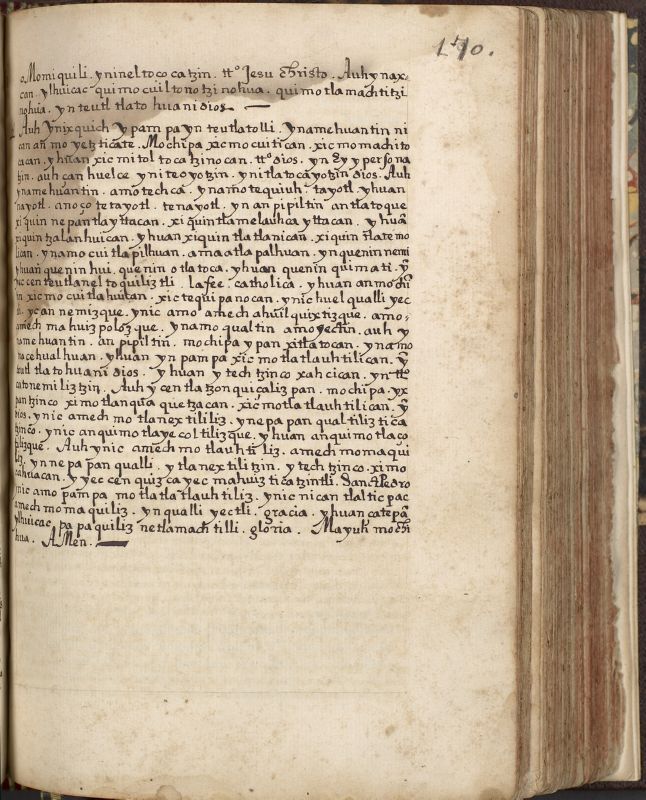 170.
o Momiquili. yninel to co ca tzin. tt͞o Jesu christo. Auh y nax-
can. ylhuicac qui mo cuil to no tzi no hua. qui mo tla mach ti tzi
no hua. yn teutl tlato hua ni dios —
Auh ynix quich y pam pa yn teutlatolli. yname huan tin ni
can añ mo yetz ticate. Mochi pa xic mo cui ti can. xic mo machi to
cacan. y huan xic mi tol to ca tzino can. tt͞o dios. yn ey y persona
tzin. auh can huel ce yni teo yo tzin. yni tla to ca yo tzin dios. Auh
yname huan tin. amo tech ca. y namo tequiuh tayotl y huan
nayotl. ano ço te tayotl. te nayotl. yn an pipil tin an tla to que
xi quin ne pan tla ytta can. xi quin tla melauh ca ytta can. y huã
xi quin tzalan hui can. y huan xi quin tla tlani can. xi quin tla te mo
lican. y namo cui tla pil huan. amo a tla pal huan. yn que nin nemi
y huan que nin hui. que nin o tla to ca. y huan quenin qui ma ti. y
nic cen teu tla nel to qui liz tli. la fee catholica. y huan an mo chi
n xic mo cui tla hui can. xic te qui pa no can. y nic huel qualli yec
ycan ne miz que. ynic amo amech ahuil quix tiz que. amo-
amech ma huiz poloz que. y namo qual tin amo yec tin. auh y
name huan tin. an pipil tin. mochi pa y pan xi tla to can. y namo
ma ce hual huan. y huan yn pam pa xic mo tla tlauh tili can. y
teutl tla to hua ni dios. y huan y tech tzin co xah ci can. yn tla
ca to nemi liz tzin. Auh y cen tla tzon qui ça liz pan. mochi pa. yx
pan tzin co xi mo tlan qua que tza can. xic mo tla tlauh tili can. y
dios. y nic amech mo tla nex tililiz. y ne pa pan qual tiliz ti ca
tzin co. y nic an qui mo tla ye col tiliz que. y huan an qui mo tla ço
tiliz que. Auh ynic amech mo tlauh ti liz. amech mo ma qui
liz. yn ne pa pan qualli. y tla nex tili tzin. y tech tzin co. xi mo
cahua can. y yec cen quiz ca yec mahuiz ti ca tzin tli. dan Pedro
ynic amo pam pa mo tla tla tlauh tiliz. ynic nican tlal tic pac
amech mo ma qui liz. yn qualli yectli. gracia. y huan cate pã
ylhuicac pa pa qui liz ne tla mach tilli. gloria. Mayuh mo chi
hua. AMen. —